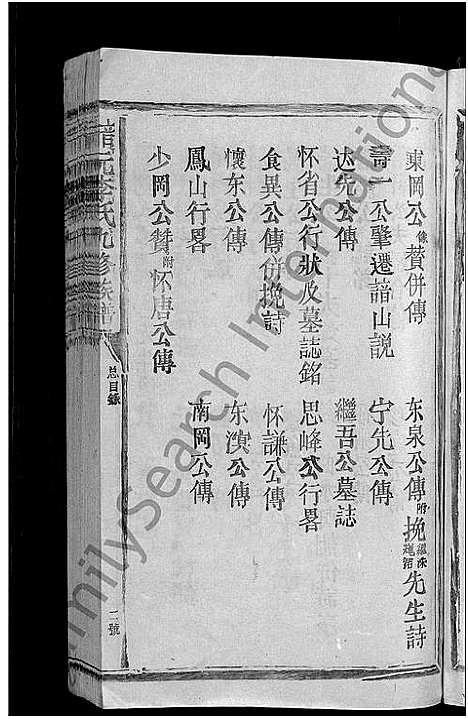 東岡公像贊併傳
东泉公傳附挽先生詩
壽一公肇遷諳山説
宁先公傳
达先公傳
繼吾公墓誌
怀省公行狀及墓誌銘
思峰公行畧
食異公傳併挽詩
怀謙公傳
懷东公傳
东濱公傳
鳳山行畧
南岡公傳
少岡公贊附怀唐公傳
李氏九修族譜
总目錄
二號
milySearch International